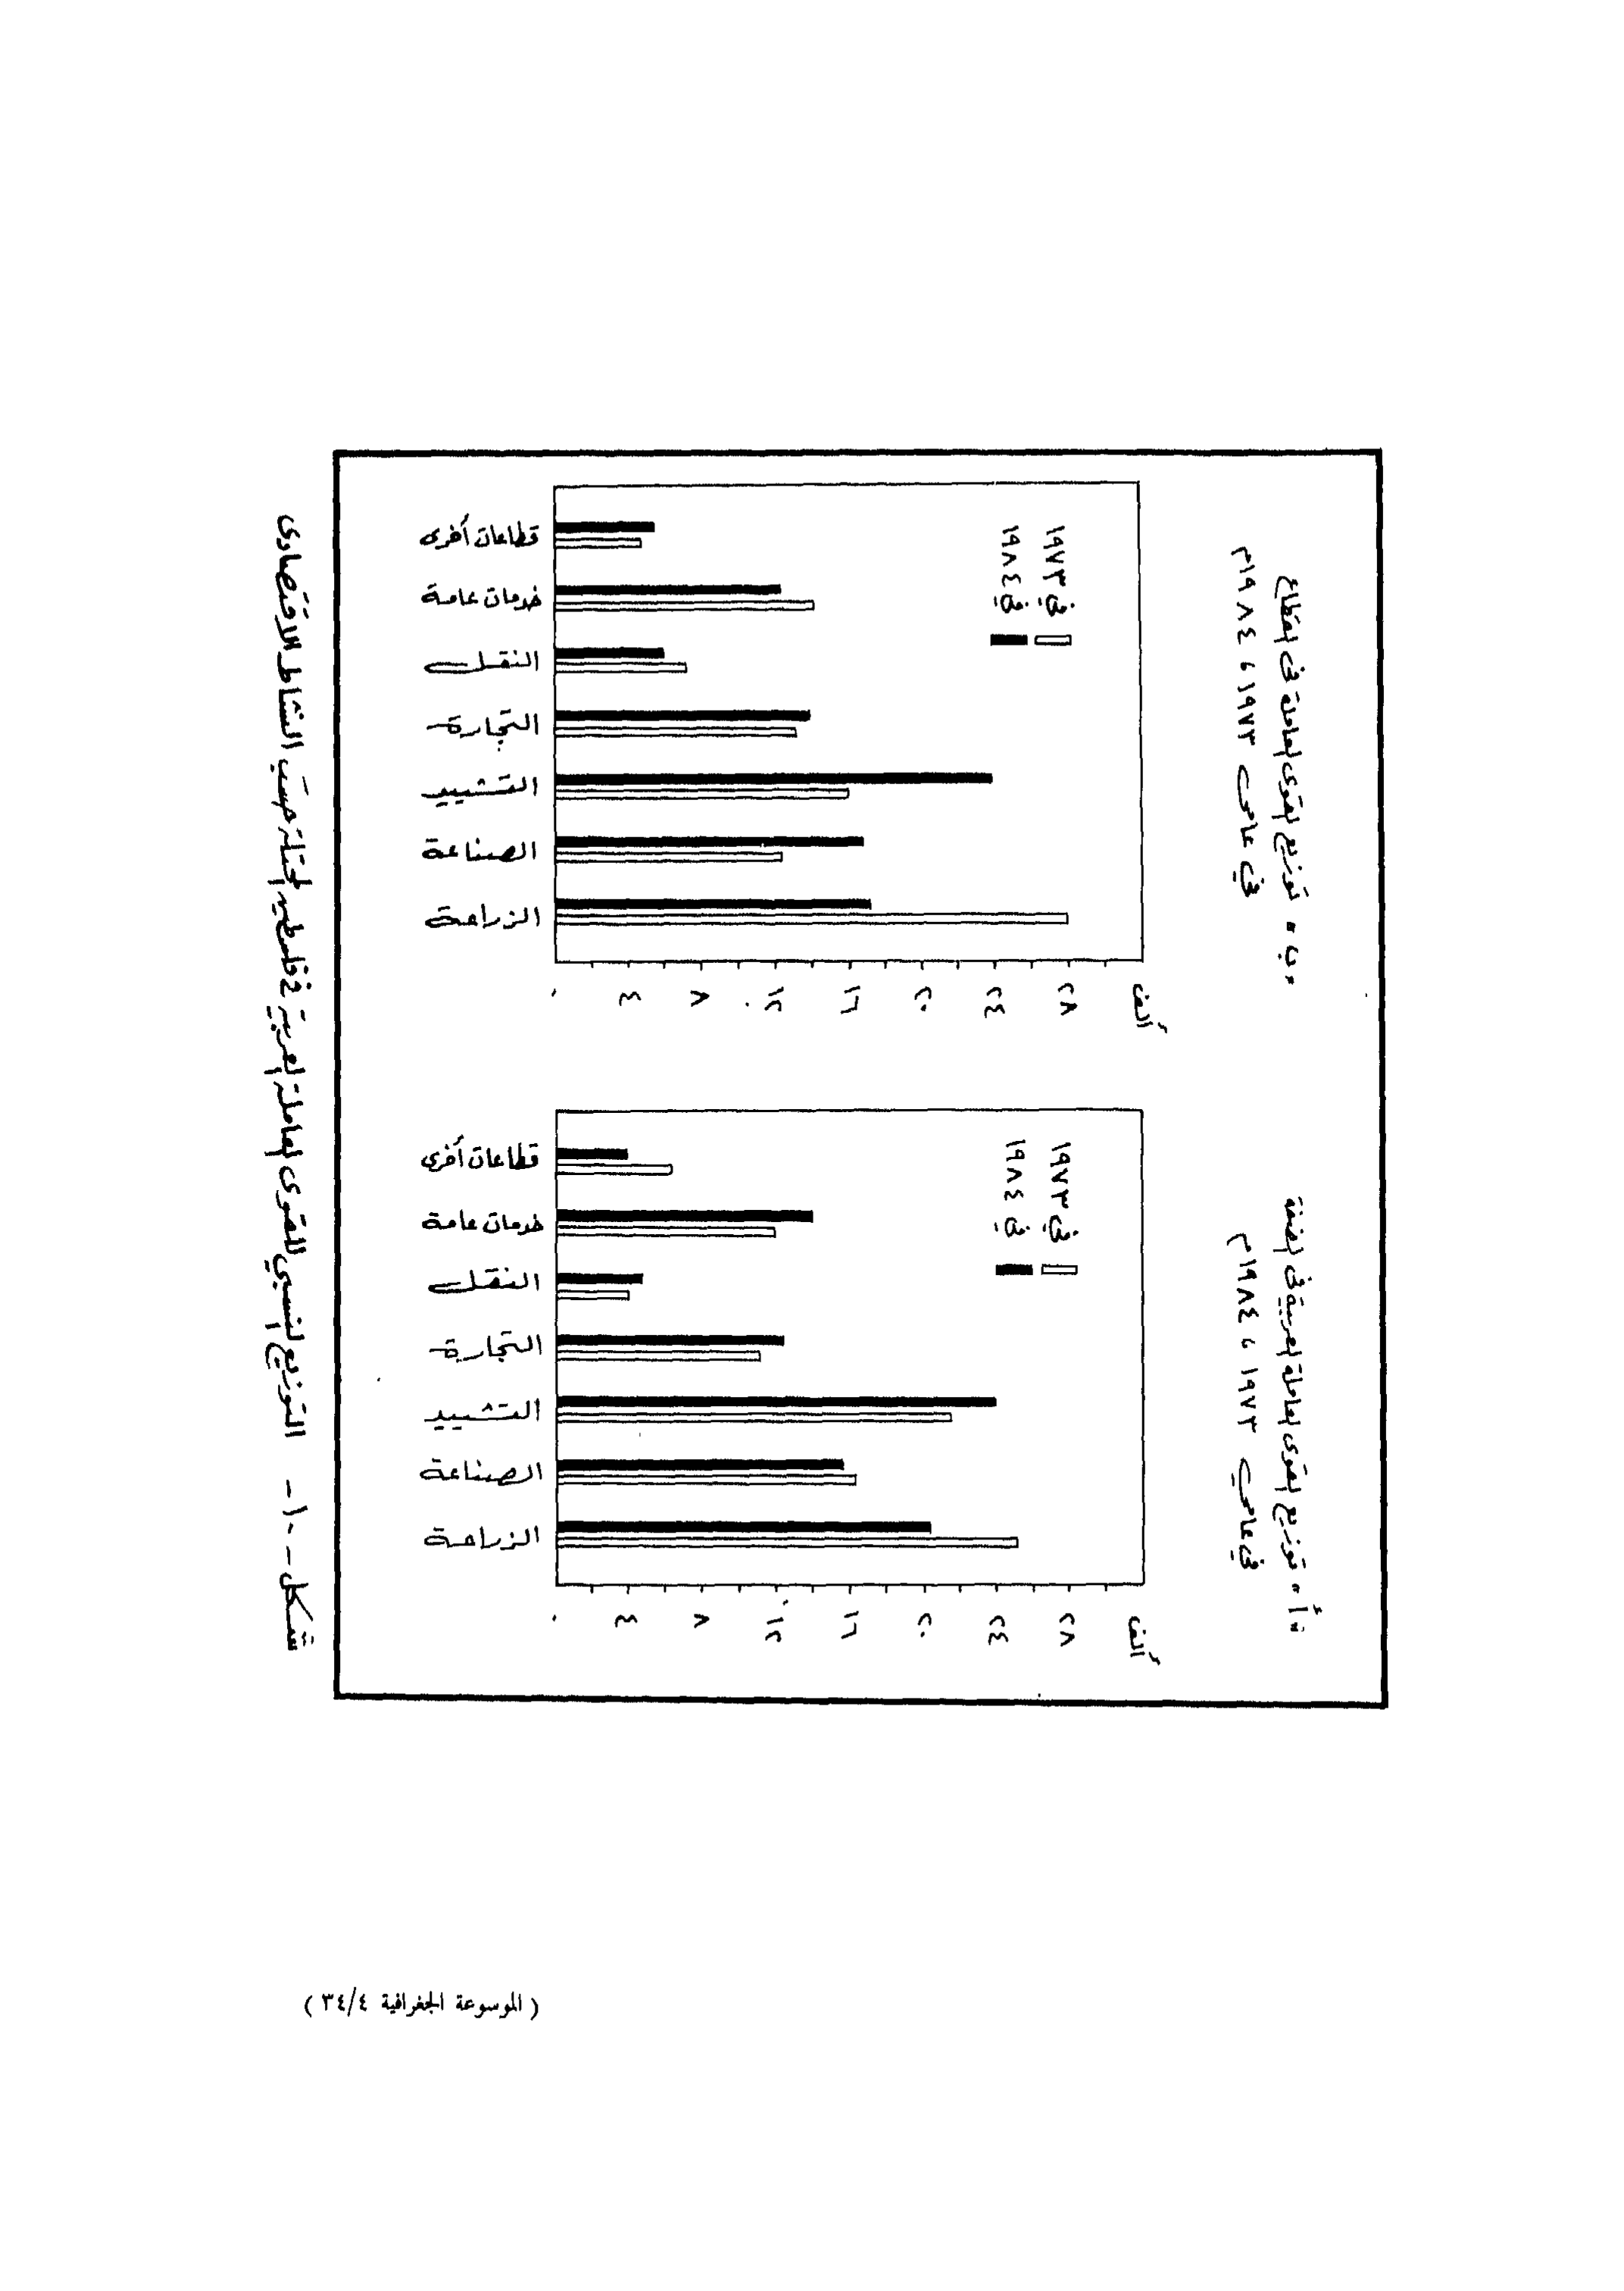 " أ " توزيع القوى العاملة العربية في الضفة
في عامي ١٩٧٣ ، ١٩٨٤م
ألف
٢٨
٢٤
٢٠
١٦
١٢
٨
٤
٠
في ١٩٧٣
في ١٩٨٤
الزراعة
الصناعة
التشييد
التجارة
النقل
خدمات عامة
قطاعات أخرى
" ب " توزيع القوى العاملة في القطاع
في عامي ١٩٧٣ ، ١٩٨٤م
ألف
٢٨
٢٤
٢٠
١٦
١٢
٨
٤
٠
في ١٩٧٣
في ١٩٨٤
الزراعة
الصناعة
التشييد
التجارة
النقل
خدمات عامة
قطاعات أخرى
شكل -١٠- التوزيع النسبي للقوى العاملة العربية في فلسطين المحتلة حسب النشاط الاقتصادى
( الموسوعة الجغرافية ٣٤/٤ )